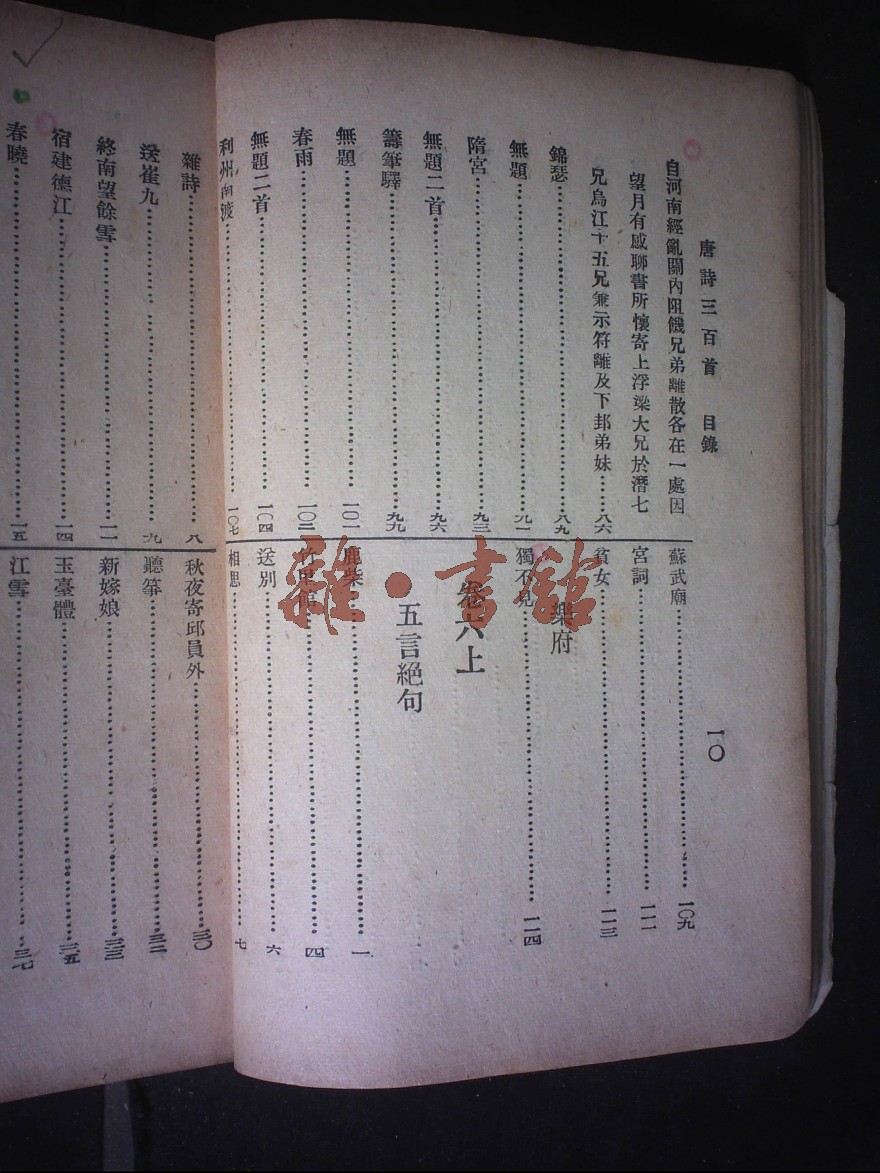 唐詩三百首 目錄
一〇
自河南經亂關內阻饑兄弟離散各在一處因
望月有感聊書所懷寄上浮梁大兄於潛七
兄烏江十五兄兼示符離及下邽弟妹……八六
錦瑟……八九
無題……九一
隋宮……九三
無題二首……九六
籌筆驛……九九
無題……一〇一
春雨……一〇二
無題二首……一〇四
利州南渡……一〇七
蘇武廟……一〇九
宮詞……一一一
貧女……一一三
樂府
獨不見……一一四
卷六上
五言絕句
鹿柴……一
竹里館……四
送別……六
相思……七
雜詩……八
送崔九……九
終南望餘雪……一一
宿建德江……一四
春曉……一五
秋夜寄邱員外……三〇
聽箏……三二
新嫁娘……三三
玉臺體……三五
江雪……三七
雜·書館